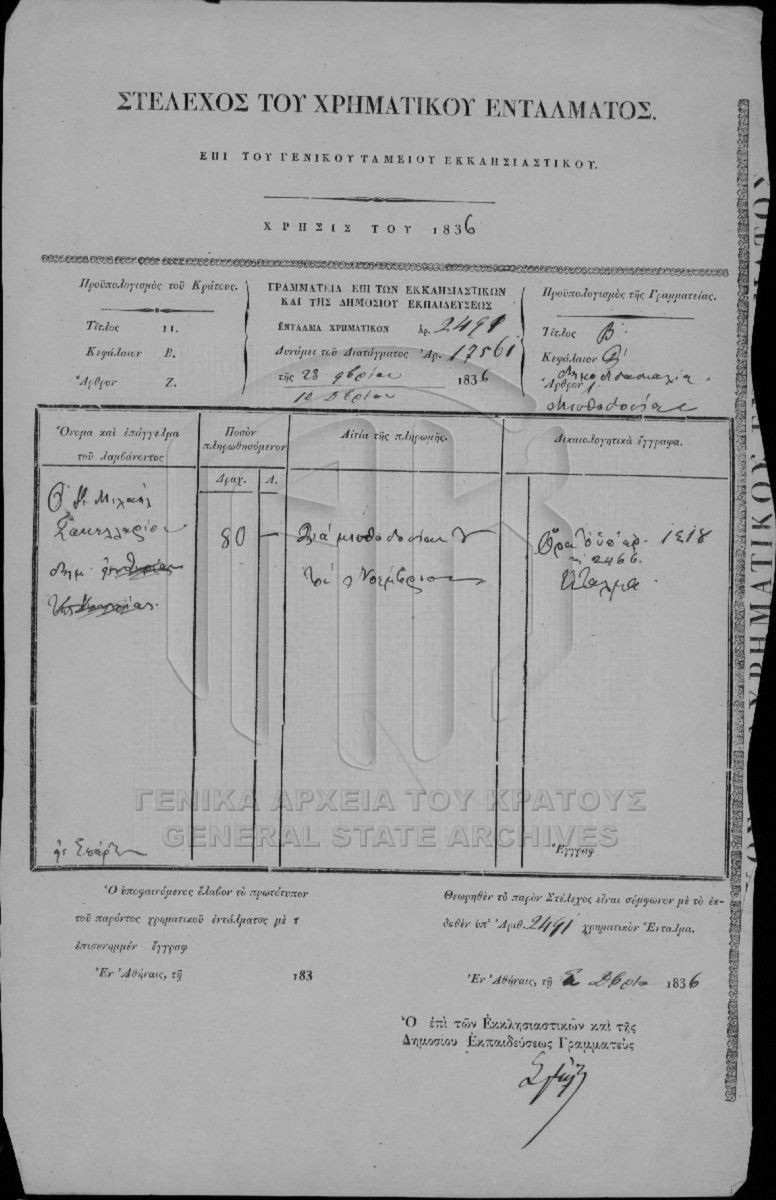 ΣΤΕΛΕΧΟΣ ΤΟΥ ΧΡΗΜΑΤΙΚΟΥ ΕΝΤΑΛΜΑΤΟΣ.
ΕΠΙ ΤΟΥ ΓΕΝΙΚΟΥ ΤΑΜΕΙΟΥ ΕΚΚΛΗΣΙΑΣΤΙΚΟΥ.
ΧΡΗΣΙΣ ΤΟΥ 1836
Προϋπολογισμὸς τοῦ Κράτους.
Τίτλος 11.
Κεφάλαιον Β.
Ἄρθρον Ζ.
ΓΡΑΜΜΑΤΕΙΑ ΕΠΙ ΤΩΝ ΕΚΚΛΗΣΙΑΣΤΙΚΩΝ
ΚΑΙ ΤΗΣ ΔΗΜΟΣΙΟΥ ΕΚΠΑΙΔΕΥΣΕΩΣ
ΕΝΤΑΛΜΑ ΧΡΗΜΑΤΙΚΟΝ Ἀρ. 2491
Δυνάμει τοῦ Διατάγματος Ἀρ.
τῆς 28 9βρίου 1836
10 Δβρίου
Προϋπολογισμὸς τῆς Γραμματείας.
Τίτλος Β
Κεφάλαιον
Ἄρθρον
Μισθοδοσίαι
Ὄνομα καὶ ἐπάγγελμα
τοῦ λαμβάνοντος
Ποσὸν
πληρωθησόμενον
Δραχ. Λ.
Αἰτία τῆς πληρωμῆς.
Δικαιολογητικὰ ἔγγραφα.
Μιχαὴλ
Σακελλαρίου
80 —
Διὰ μισθοδοσίαν
Νοέμβριον
Ὅρα 1818
2466
ἔνταλμα
Σπάρτῃ
Ἔγγραφ
ΓΕΝΙΚΑ ΑΡΧΕΙΑ ΤΟΥ ΚΡΑΤΟΥΣ
GENERAL STATE ARCHIVES
Ὁ ὑποφαινόμενος ἔλαβον τὸ πρωτότυπον
τοῦ παρόντος χρηματικοῦ ἐντάλματος μὲ τ
ἐπισυνημμέν ἔγγραφ
Ἐν Ἀθήναις, τῇ 183
Θεωρηθὲν τὸ παρὸν Στέλεχος εἶναι σύμφωνον μὲ τὸ ἐκ-
δοθὲν ὑπ' Ἀριθ. 2491 χρηματικὸν Ἔνταλμα.
Ἐν Ἀθήναις, τῇ Δβρίου 1836
Ὁ ἐπὶ τῶν Ἐκκλησιαστικῶν καὶ τῆς
Δημοσίου Ἐκπαιδεύσεως Γραμματεὺς